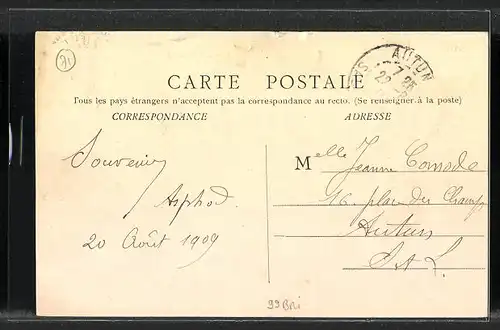 71
AUTUN
7 25
22
CARTE POSTALE
Tous les pays étrangers n'acceptent pas la correspondance au recto. (Se renseigner à la poste)
CORRESPONDANCE
ADRESSE
Souvenir
20 Août 1909
Melle Jeanne Comode
16, place du Champ
Autun
S. et L.